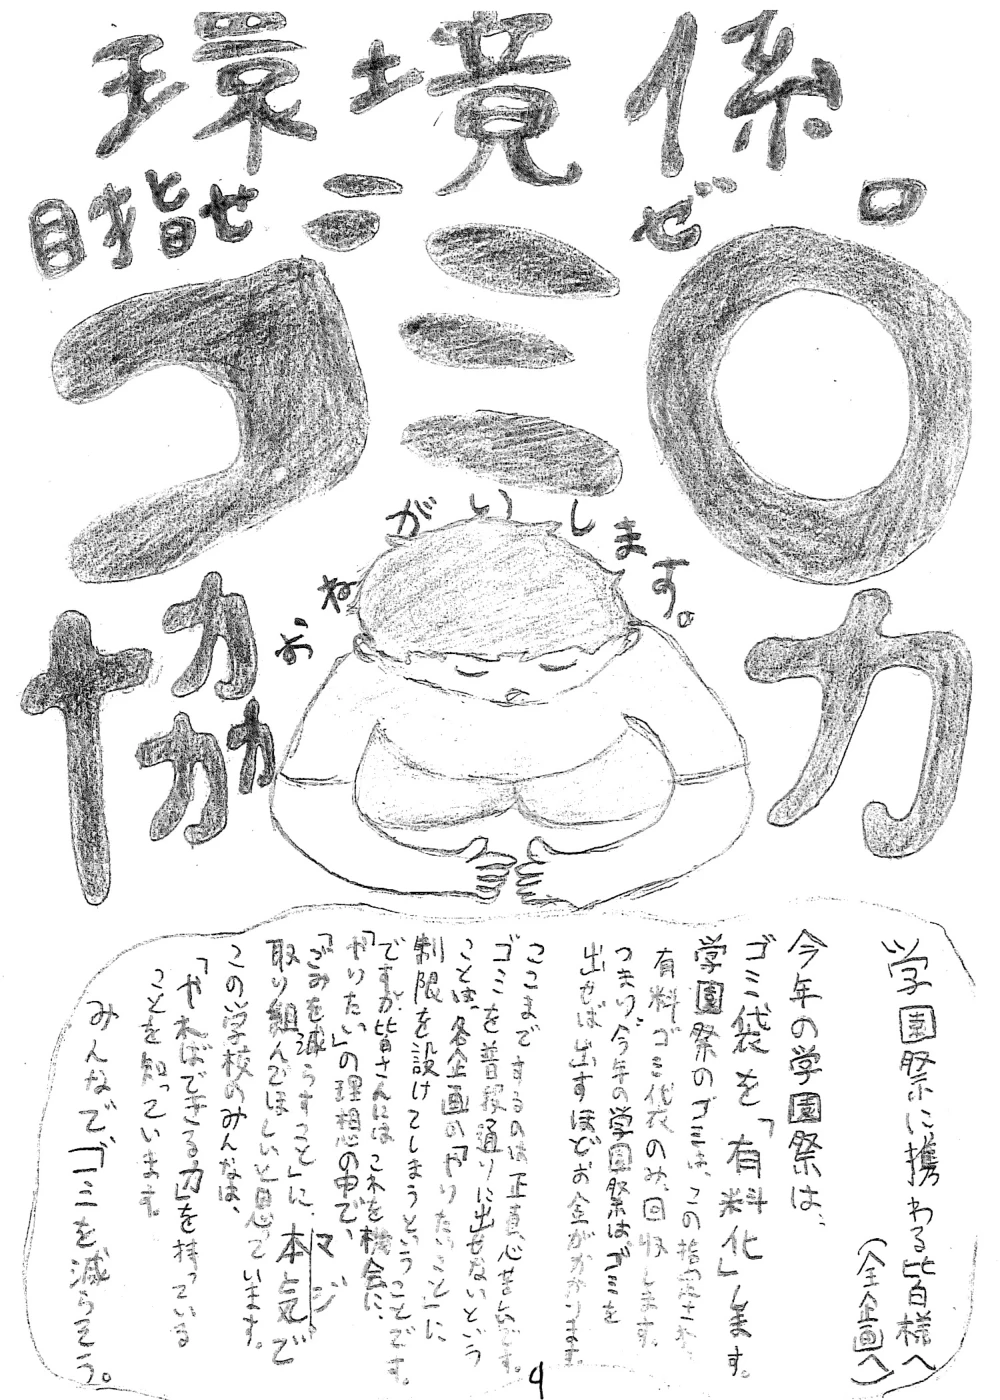 環境係
目指せ
ゴミ
ゼロ
0
協力
おねがいします。
学園祭に携わる皆様へ
(全企画へ)
今年の学園祭は、
ゴミ袋を「有料化」します。
学園祭のゴミは、この指定され
有料ゴミ代衣のめ、回収します。
つまり、今年の学園祭はゴミを
出せば出すほどお金がかかります
ここまでするのは正直、心苦しいです。
ゴミを普段通りに出せないという
ことは、各企画の「やりたいこと」に
制限を設けてしまうということです。
ですが、皆さんにはこれを機会に、
「やりたい」の理想の中で、
「ごみを減らすこと」に、本気で
マジ
取り組んでほしいと思っています。
この学校のみんなは、
「やればできる力」を持っている
ことを知っています。
みんなでゴミを減らそう。
9